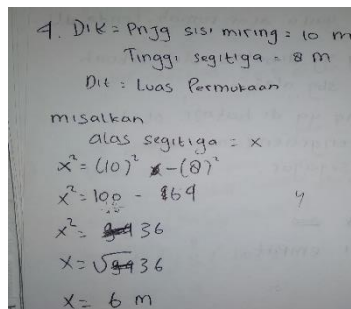 4. Dik = Pnjg sisi miring = 10 m
Tinggi segitiga = 8 m
Dit : Luas Permukaan
misalkan
alas segitiga = x
x² = (10)² - (8)²
x² = 100 - 64
x² = 36
x = √36
x = 6 m